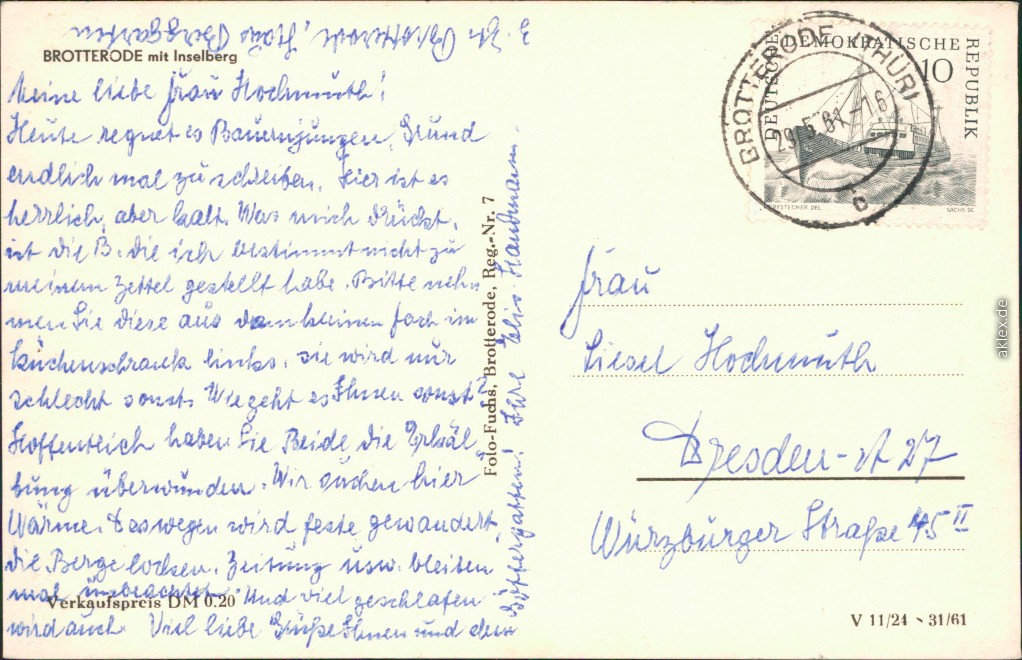 z. Zt. Brotterode, Haus Berggarten
BROTTERODE mit Inselberg
Meine liebe Frau Hochmuth!
Heute regnet es Bauernjungen, Grund
endlich mal zu schreiben. Hier ist es
herrlich, aber kalt. Was mich drückt,
ist die B. die ich bestimmt nicht zu
meinem Zettel gestellt habe. Bitte neh-
men Sie diese aus dem kleinen Fach im
Küchenschrank links. sie wird nur
schlecht sonst. Wie geht es Ihnen sonst?
Hoffentlich haben Sie Beide die Erkäl
tung überwunden. Wir suchen hier
Wärme. Deswegen wird feste gewandert,
die Berge locken. Zeitung usw. bleiben
mal unbeachtet. Und viel geschlafen
wird auch. Viel liebe Grüße Ihnen und dem
Göttergatten! Ihre Elis. Haubmann
Verkaufspreis DM 0.20
Foto-Fuchs, Brotterode, Reg.-Nr. 7
DEUTSCHE DEMOKRATISCHE REPUBLIK
10
BROTTERODE (THÜR)
29.5.61.-16
c
BESTECHER DEL.
SACHS SC.
Frau
Liesel Hochmuth
Dresden-A 27
Würzburger Straße 45 II
V 11/24 - 31/61
aklex.de